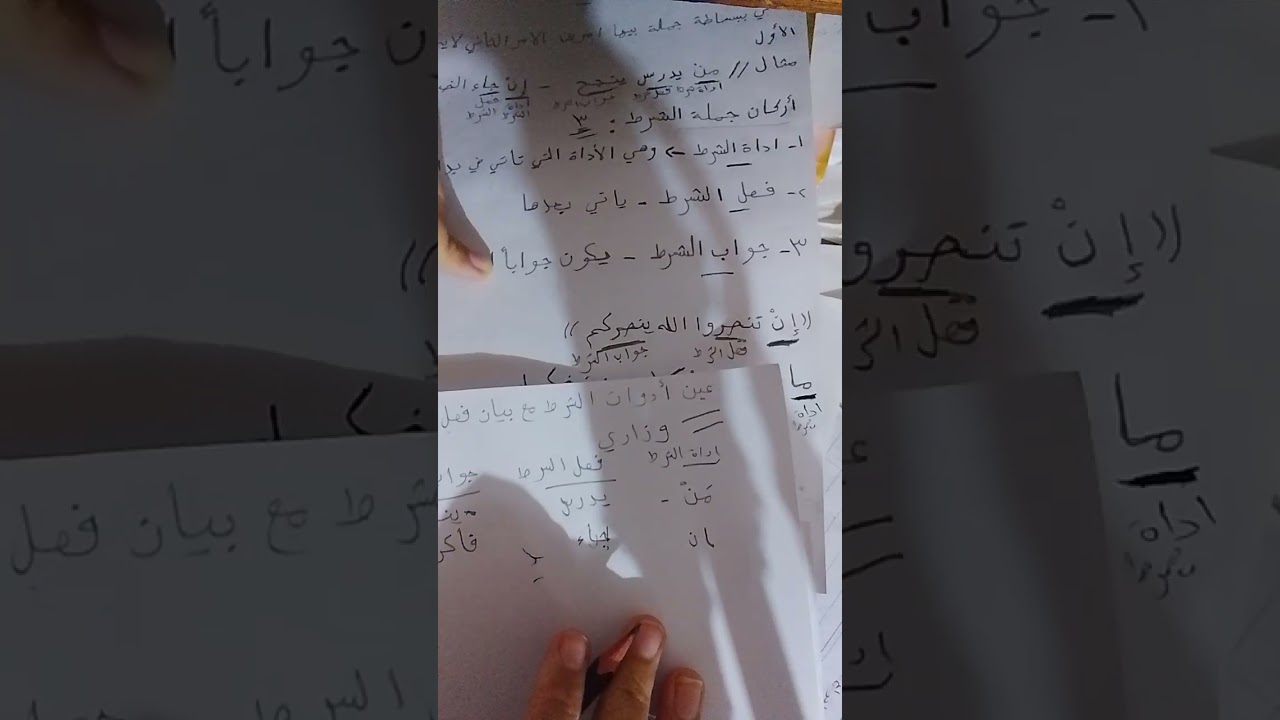 بساطة جملة بيها أمرين الأمر الثاني
الأول
مثال // من يدرس ينجح - إن جاء
أداة شرط فعل شرط جواب شرط أداة الشرط فعل الشرط
أركان جملة الشرط : ٣
١- اداة الشرط ← وهي الأداة التي تأتي في
٢- فعل الشرط - ياتي بعدها
٣- جواب الشرط - يكون جواباً
((إنْ تنصروا الله ينصركم))
فعل الشرط جواب الشرط
ما
اداة شرط
عين أدوات الشرط مع بيان فعل
وزاري
اداة الشرط فعل الشرط
مَنْ - يدرس
ان جاء